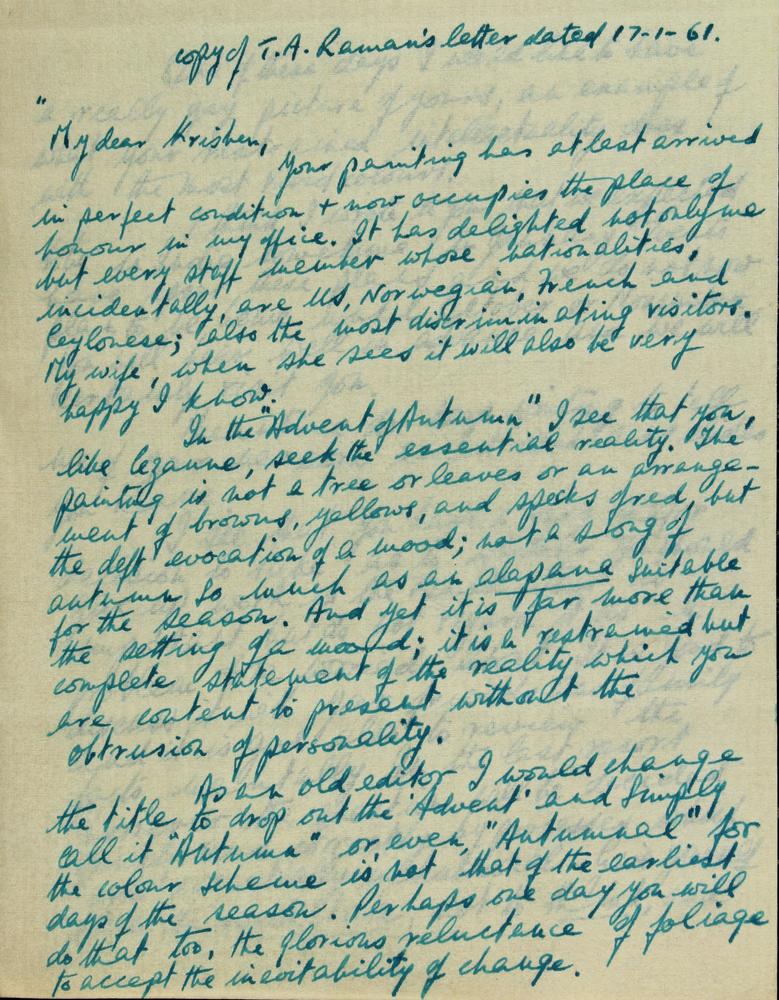 copy of T.A. Raman's letter dated 17-1-61.
"
My dear Krishen,
Your painting has at last arrived
in perfect condition + now occupies the place of
honour in my office. It has delighted not only me
but every staff member whose nationalities,
incidentally, are US, Norwegian, French and
Ceylonese; also the most discriminating visitors.
My wife, when she sees it will also be very
happy I know.
In the "Advent of Autumn" I see that you,
like Cezanne, seek the essential reality. The
painting is not a tree or leaves or an arrange-
ment of browns, yellows, and specks of red, but
the deft evocation of a mood; not a song of
autumn so much as an alapana suitable
for the season. And yet it is far more than
the setting of a mood; it is a restrained but
complete statement of the reality which you
are content to present without the
obtrusion of personality.
As an old editor I would change
the title to drop out the 'Advent' and simply
call it "Autumn" or, even, "Autumnal" for
the colour scheme is not that of the earliest
days of the season. Perhaps one day you will
do that too, the glorious reluctance of foliage
to accept the inevitability of change.